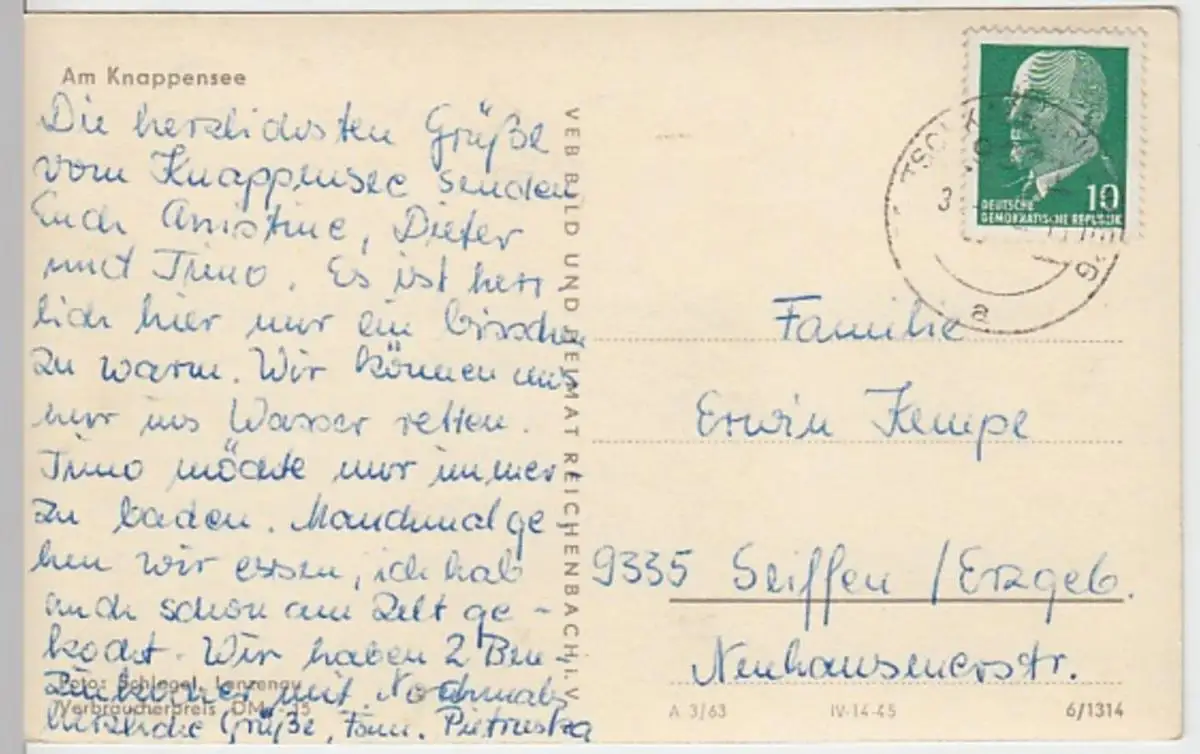 Am Knappensee
Die herzlichsten Grüße
vom Knappensee senden
Euch Christine, Dieter
und Timo. Es ist herr
lich hier nur ein bisschen
zu warm. Wir können uns
nur ins Wasser retten.
Timo möchte nur immer
zu baden. Manchmal ge
hen wir essen, ich hab
auch schon am Zelt ge-
kocht. Wir haben 2 Ben-
zinkocher mit. Nochmals
herzliche Grüße, Fam. Pietruska
Foto: Schlegel, Lanzenau
Verbraucherpreis DM -,15
VEB BILD UND HEIMAT REICHENBACH i. V.
10
DEUTSCHE
DEMOKRATISCHE REPUBLIK
3
a
Familie
Erwin Kempe
9335 Seiffen / Erzgeb.
Neuhausenerstr.
A 3/63 IV-14-45 6/1314